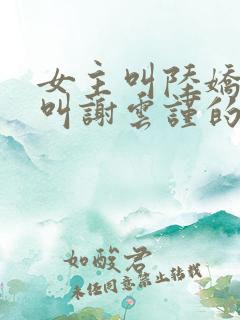 女主叫陸嬌
叫謝雲謹的
如酸君
未经同意禁止转载